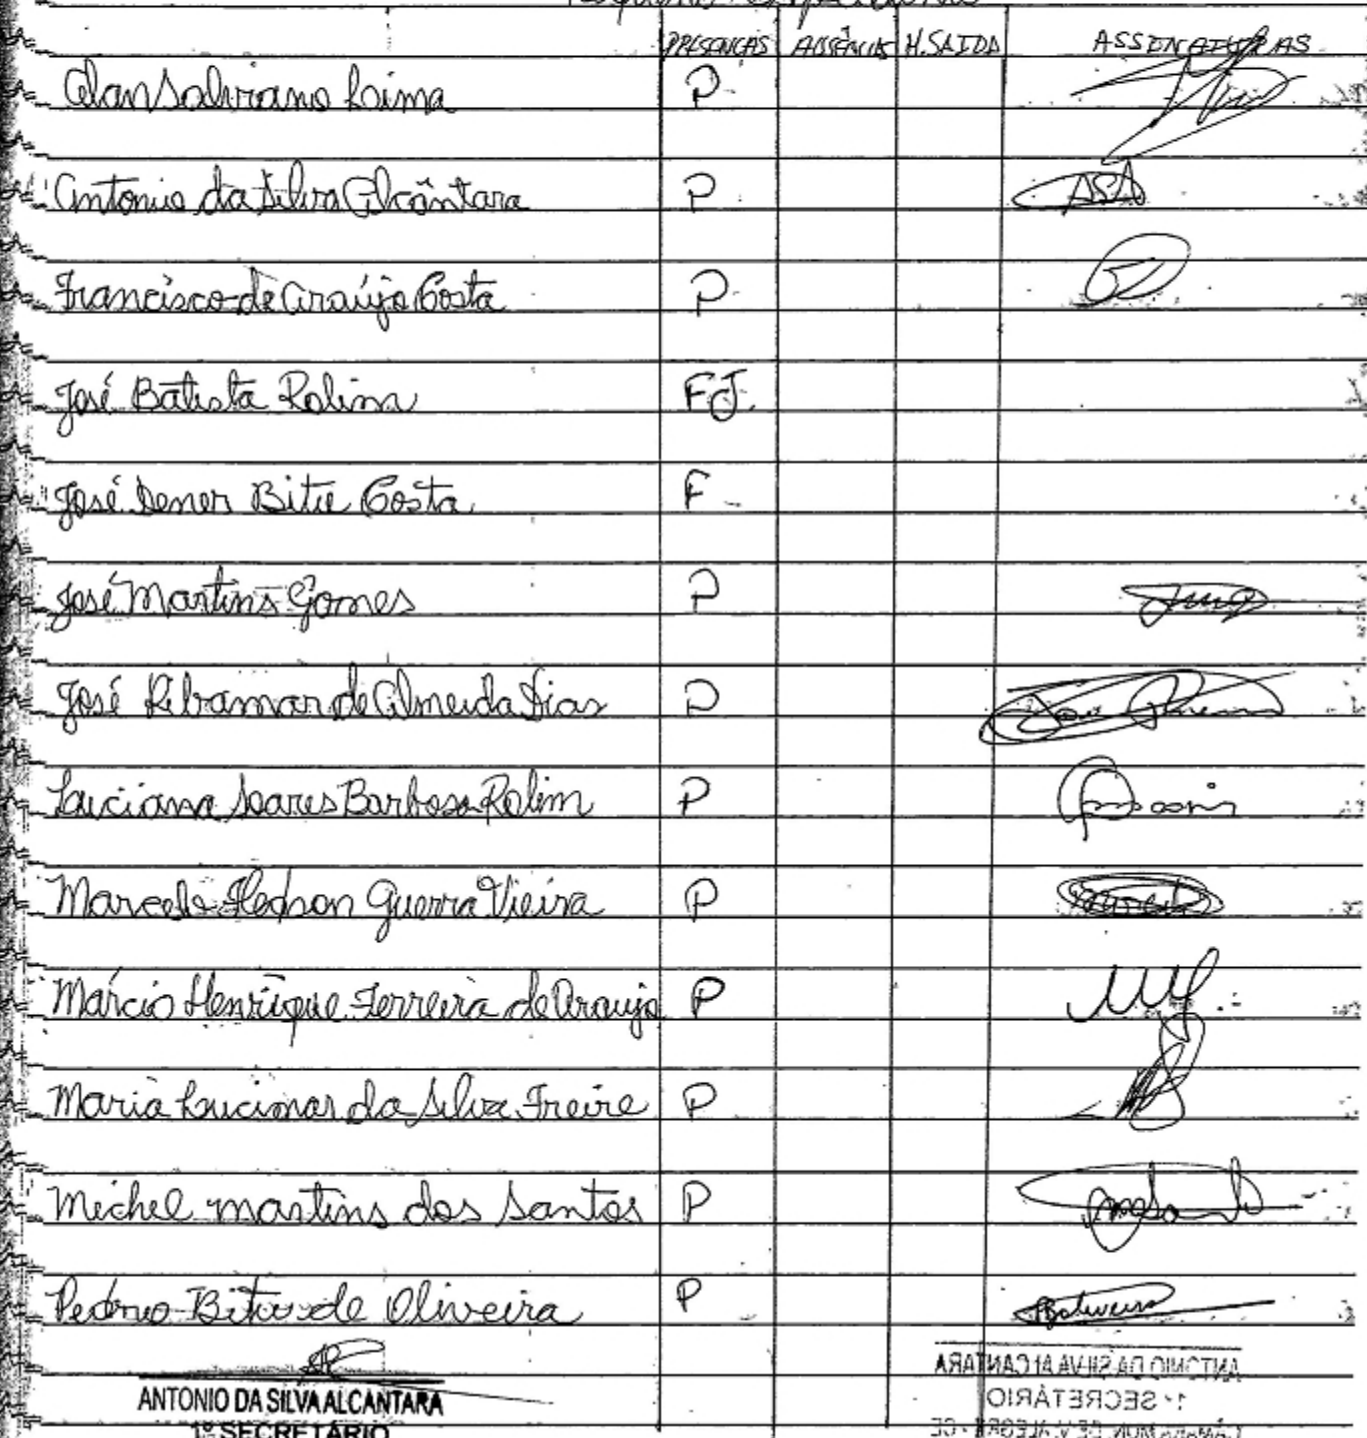 PRESENÇAS AUSÊNCIA H.SAIDA ASSINATURAS
Alan Salviano Lima P
Antonio da Silva Alcântara P ASA
Francisco de Araújo Costa P
José Batista Rolim FJ.
José Dener Bitu Costa. F
José Martins Gomes P
José Ribamar de Almeida Dias P
Luciana Soares Barbosa Rolim P
Marcelo Fledson Guerra Vieira P
Márcio Henrique Ferreira de Araujo P
Maria Lucimar da Silva Freire P
Michel Martins dos Santos P
Pedro Bitu de Oliveira P
ANTONIO DA SILVA ALCANTARA
1º SECRETÁRIO
ANTONIO DA SILVA ALCANTARA
1º SECRETÁRIO